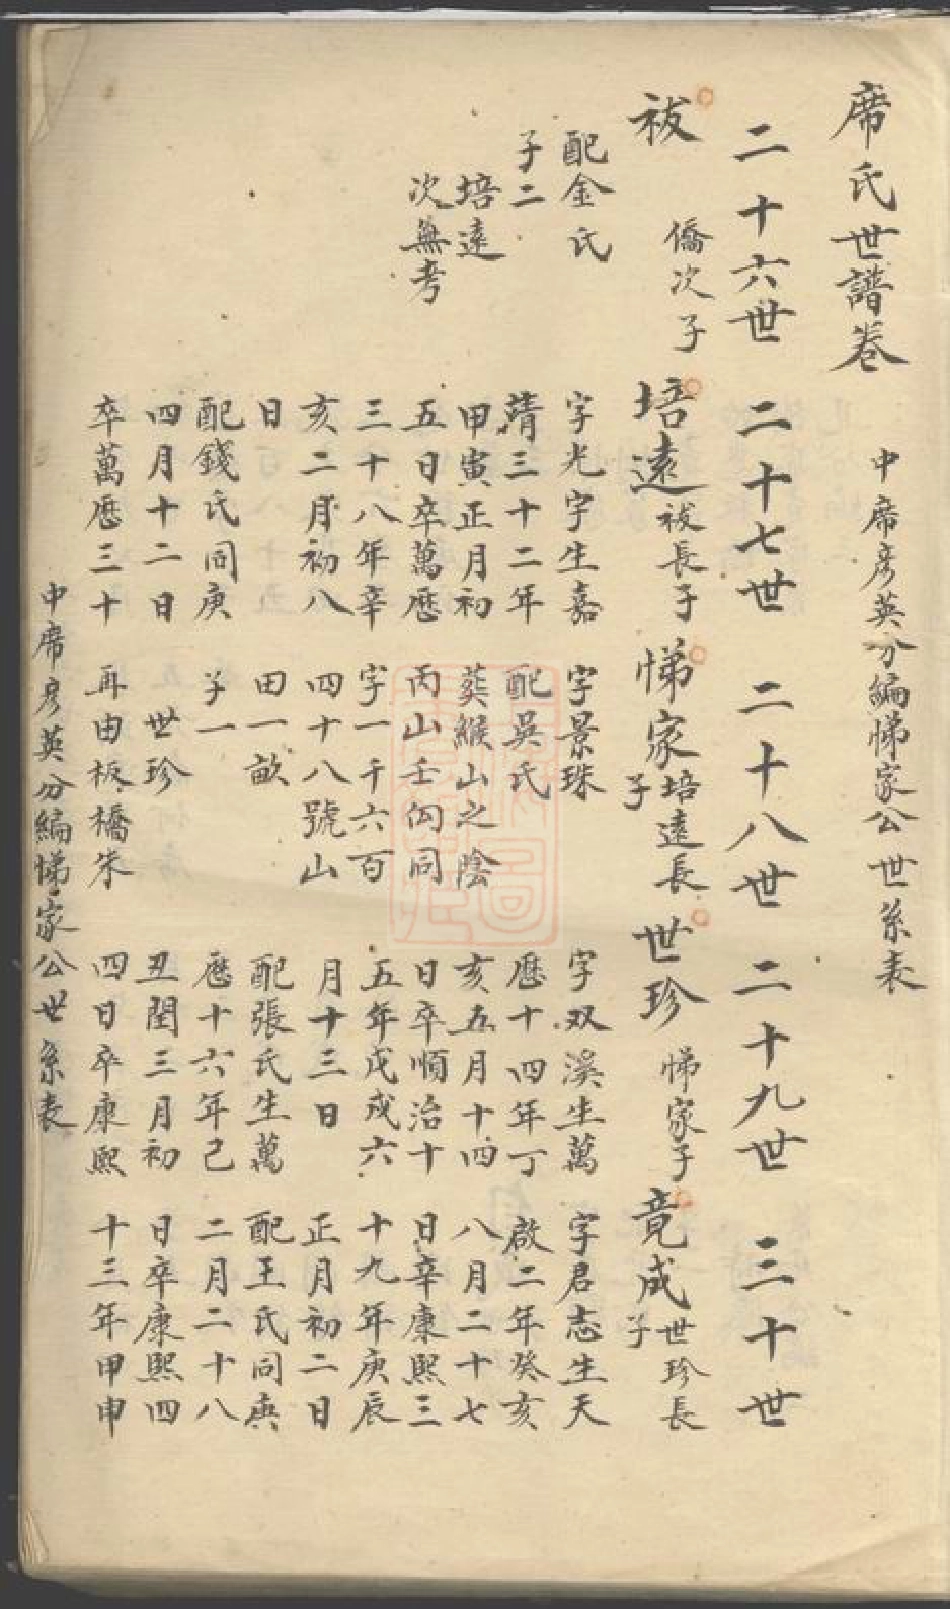 席氏世譜卷
中席彦英分編悌家公世系表
二十六世 二十七世 二十八世 二十九世 三十世
祓 僑次子
配金氏
子二
培遠
次無考
培遠 祓長子
字光宇生嘉
靖三十二年
甲寅正月初
五日卒萬歷
三十八年辛
亥二月初八
日
配錢氏同庚
四月十二日
卒萬歷三十
悌家 培遠長
子
字景珠
配吳氏
葬緱山之陰
丙山壬向同
字一千六百
四十八號山
田一畝
子一
世珍
再由板橋朱
世珍 悌家子
字双溪生萬
歷十四年丁
亥五月十四
日卒順治十
五年戊戌六
月十三日
配張氏生萬
歷十六年己
丑閏三月初
四日卒康熙
竟成 世珍長
子
字君志生天
啟二年癸亥
八月二十七
日卒康熙三
十九年庚辰
正月初二日
配王氏同庚
二月二十八
日卒康熙四
十三年甲申
中席彦英分編悌家公世系表